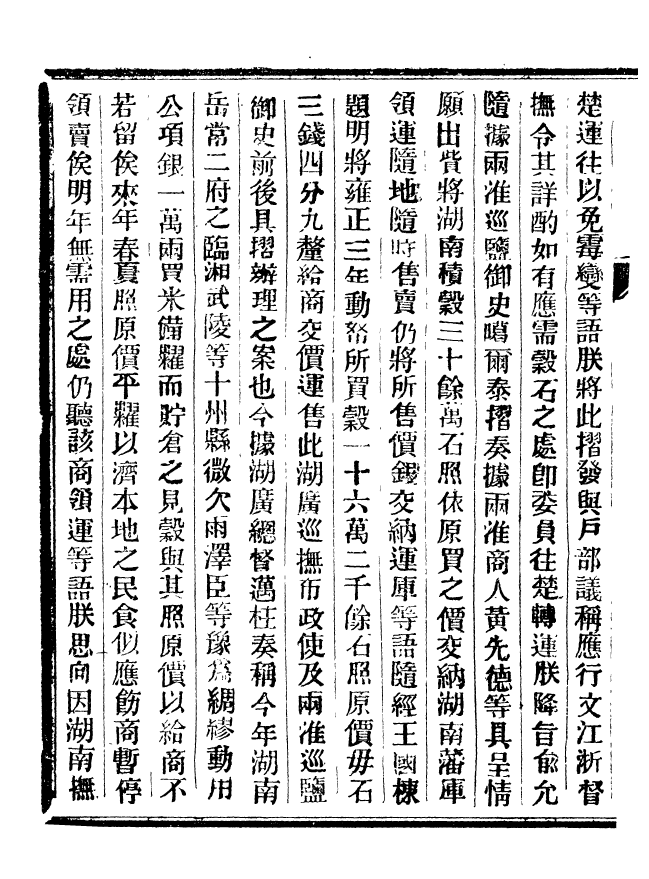 楚運往以免霉變等語朕將此摺發與戸部議稱應行文江浙督
撫令其詳酌如有應需穀石之處卽委員往楚轉運朕降旨兪允
隨據兩淮巡鹽御史噶爾泰摺奏據兩淮商人黃先德等具呈情
願出貲將湖南積穀三十餘萬石照依原買之價交納湖南藩庫
領運隨地隨時售賣仍將所售價銀交納運庫等語隨經王國棟
題明將雍正三年動帑所買穀一十六萬二千餘石照原價毋石
三錢四分九釐給商交價運售此湖廣巡撫布政使及兩淮巡鹽
御史前後具摺辦理之案也今據湖廣總督邁柱奏稱今年湖南
岳常二府之臨湘武陵等十州縣微欠雨澤臣等豫爲綢繆動用
公項銀一萬兩買米備糶而貯倉之見穀與其照原價以給商不
若留俟來年春夏照原價平糶以濟本地之民食似應飭商暫停
領賣俟明年無需用之處仍聽該商領運等語朕思向因湖南撫